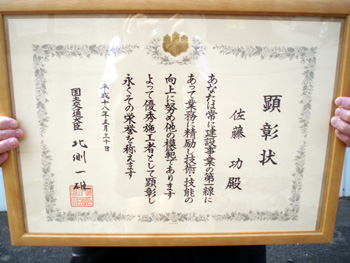 顕彰状
佐藤 功 殿
あなたは常に建設事業の第一線に
あって業務に精励し技術・技能の
向上に努め他の模範であります
よって優秀施工者として顕彰し
永くその栄誉を称えます
平成十八年五月三十日
国土交通大臣 北側一雄